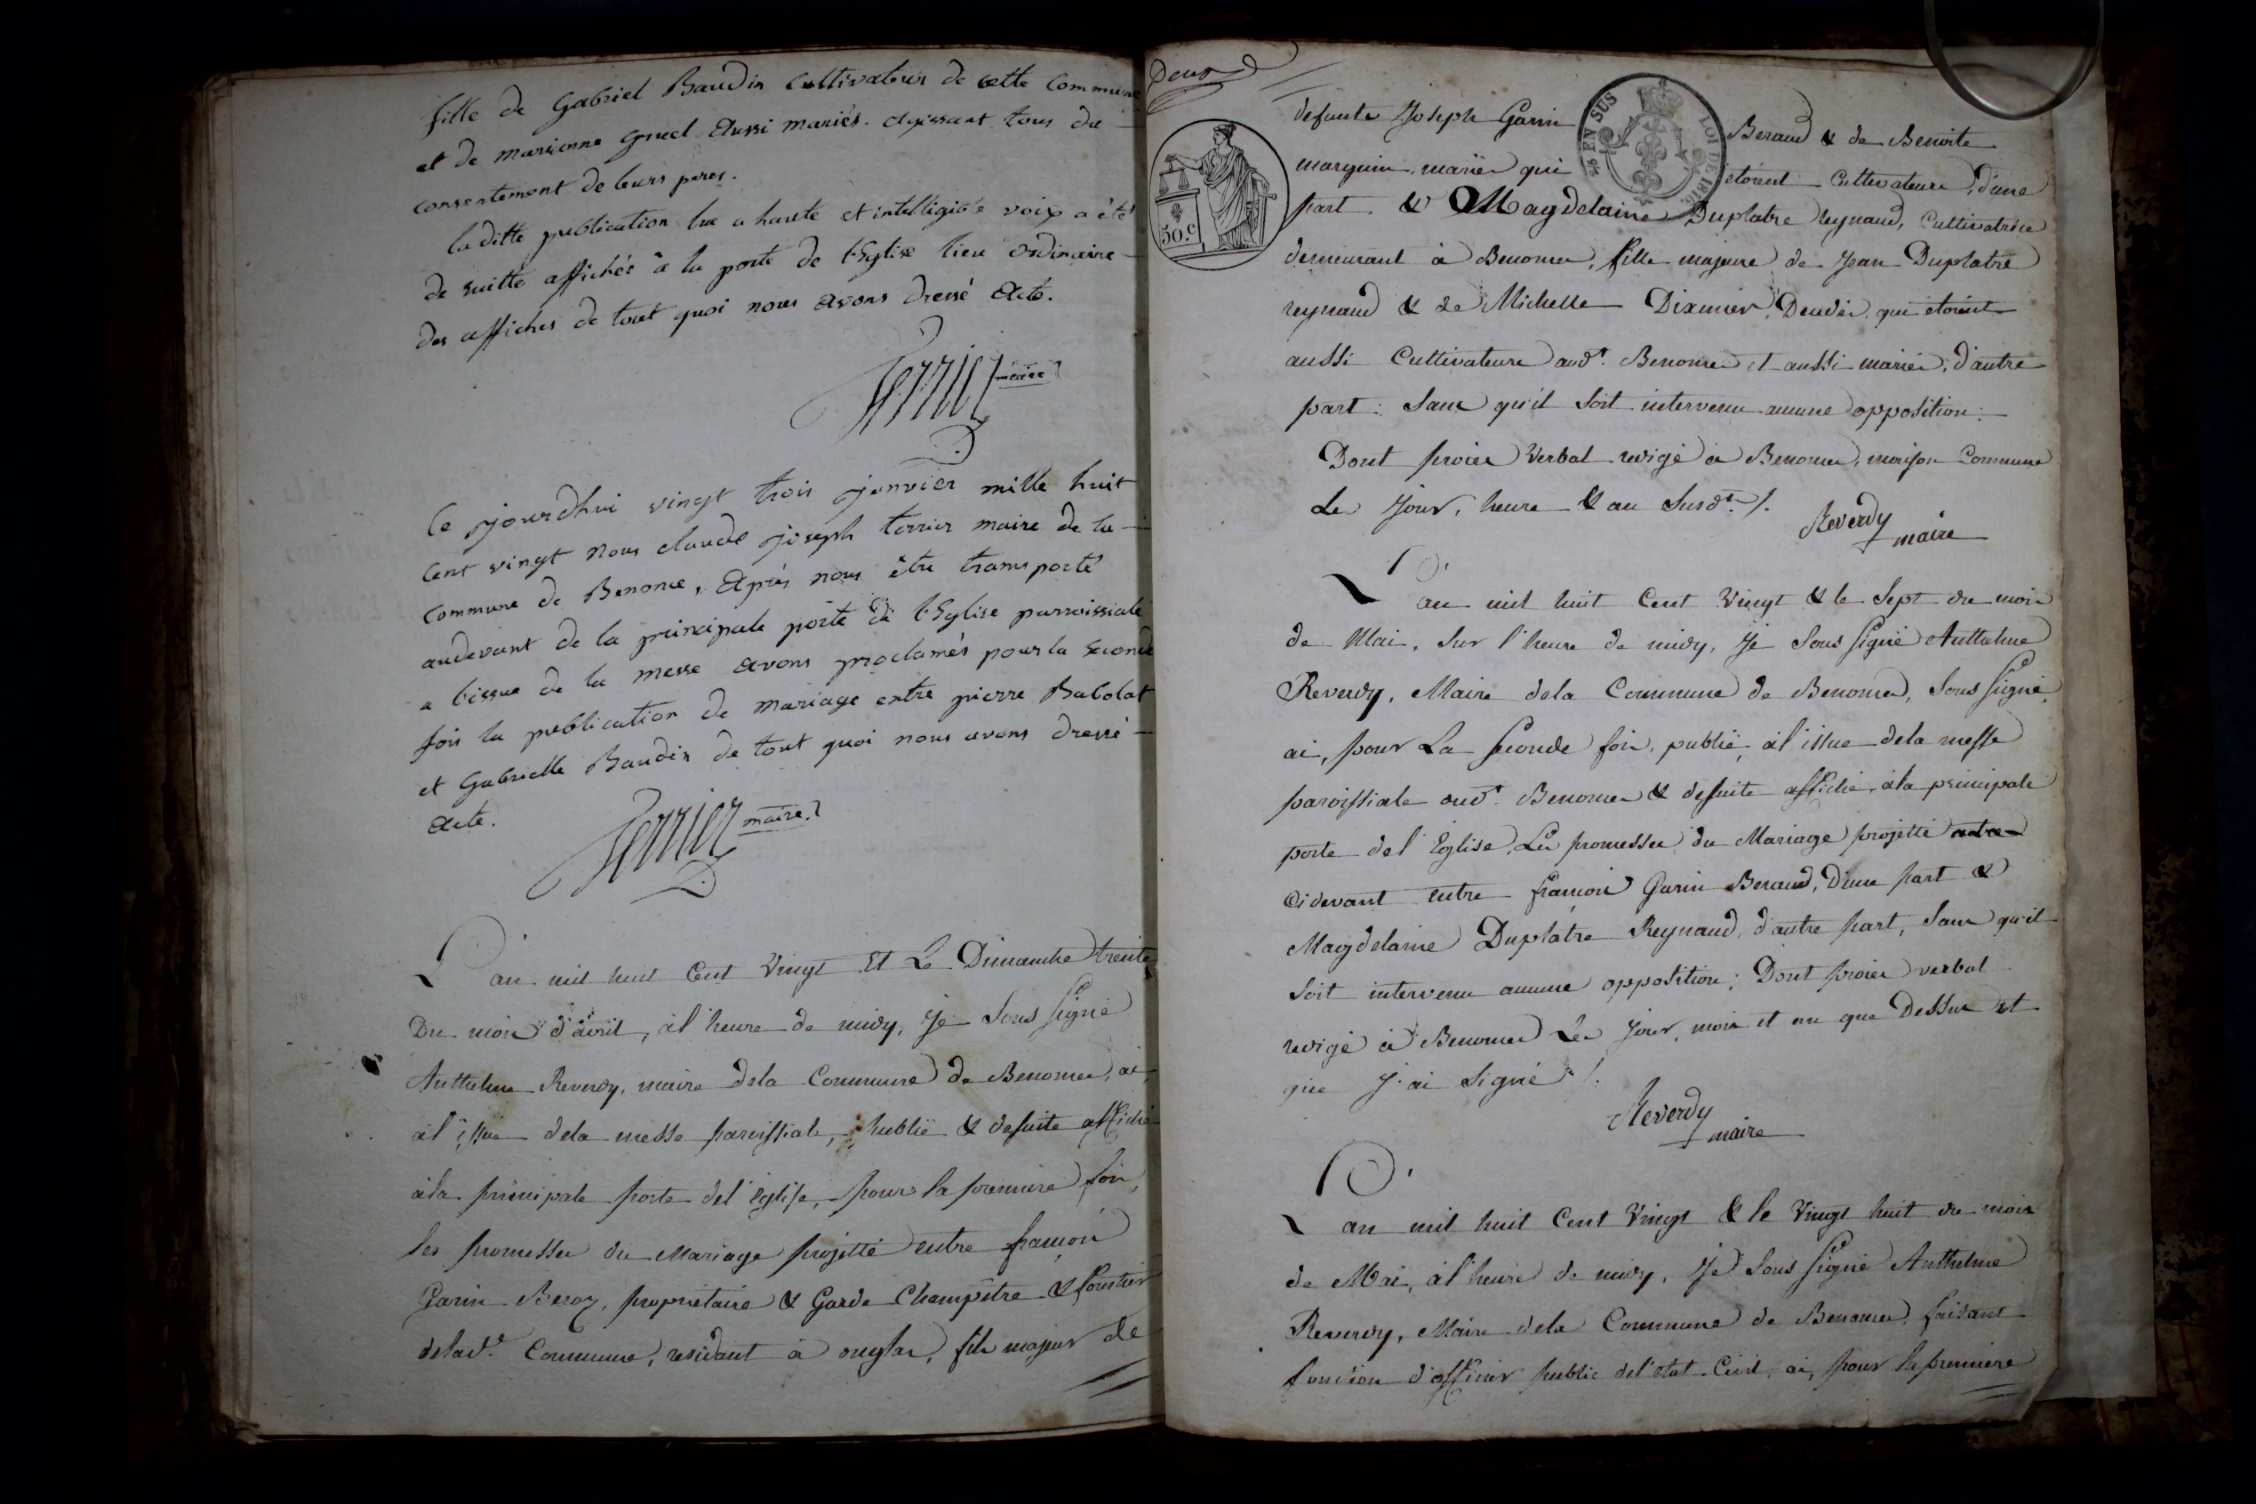 fille de Gabriel Baudin Cultivateur de cette Commune
et de marienne gruel Aussi mariés. agissant tous du
consentement de leurs peres.
laditte publication lue a haute et intelligible voix a été
de suitte affichée a la porte de l'Eglise lieu ordinaire
des affiches de tout quoi nous avons dressé Acte.
Terrier maire
Ce jourdhui vingt trois janvier mille huit
Cent vingt nous claude joseph terrier maire de la
Commune de Benonce, Après nous être transporté
audevant de la principale porte de l'Eglise parroissiale
a l'issue de la messe avons proclamés pour la seconde
fois la publication de mariage entre pierre Babolat
et Gabrielle Baudin de tout quoi nous avons dressé
Acte.
Terrier maire
L'an mil huit Cent Vingt Et Le Dimanche trente
Du mois d'avril, à l'heure de midy, Je Sous signé
Anthelme Reverdy, maire dela Commune de Benonce, ai
à l'issue dela messe paroissiale, publié & desuite affiché
àla principale porte del'église, pour la premiere fois,
les promesses du Mariage projetté entre françois
Garin Beroz, propriétaire & Garde Champêtre & forestier
delad.e Commune, residant à onglas, fils majeur de
Deux
50.c
EN SUS
LOI DE 1816
defunts Joseph Garin Beraud & de Benoite
marguin, mariés qui étoient Cultivateurs, d'une
part & Magdelaine Duplatre reynaud, Cultivatrice
demeurant à Benonce, fille majeure de Jean Duplatre
reynaud & de Michelle Dixmier Deudés, qui étoient
aussi Cultivateurs aud.t Benonce et aussi mariés, d'autre
part: Sans qu'il soit intervenu aucune opposition:
Dont procès Verbal redigé à Benonce, maison Commune
Les Jour, heure & an Susd.t /.
Reverdy maire
L'an mil huit Cent Vingt & le Sept du mois
de Mai, sur l'heure de midy, Je Sous signé Anthelme
Reverdy, Maire dela Commune de Benonce, Sous signé,
ai, pour La seconde fois, publié, à l'issue dela messe
paroissiale aud.t Benonce & desuite affiché, àla principale
porte del'Eglise, Les promesses du Mariage projetté
Cidevant entre françois Garin Beraud, D'une part &
Magdelaine Duplâtre Reynaud, d'autre part, Sans qu'il
Soit intervenu aucune opposition; Dont procès verbal
redigé à Benonce Les Jour, mois et an que Dessus et
que J'ai Signé /.
Reverdy maire
L'an mil huit Cent Vingt & le Vingt huit du mois
de Mai, à l'heure de midy, Je Sous signé Anthelme
Reverdy, Maire dela Commune de Benonce, faisant
fonction d'officier public del'état Civil, ai, pour la premiere